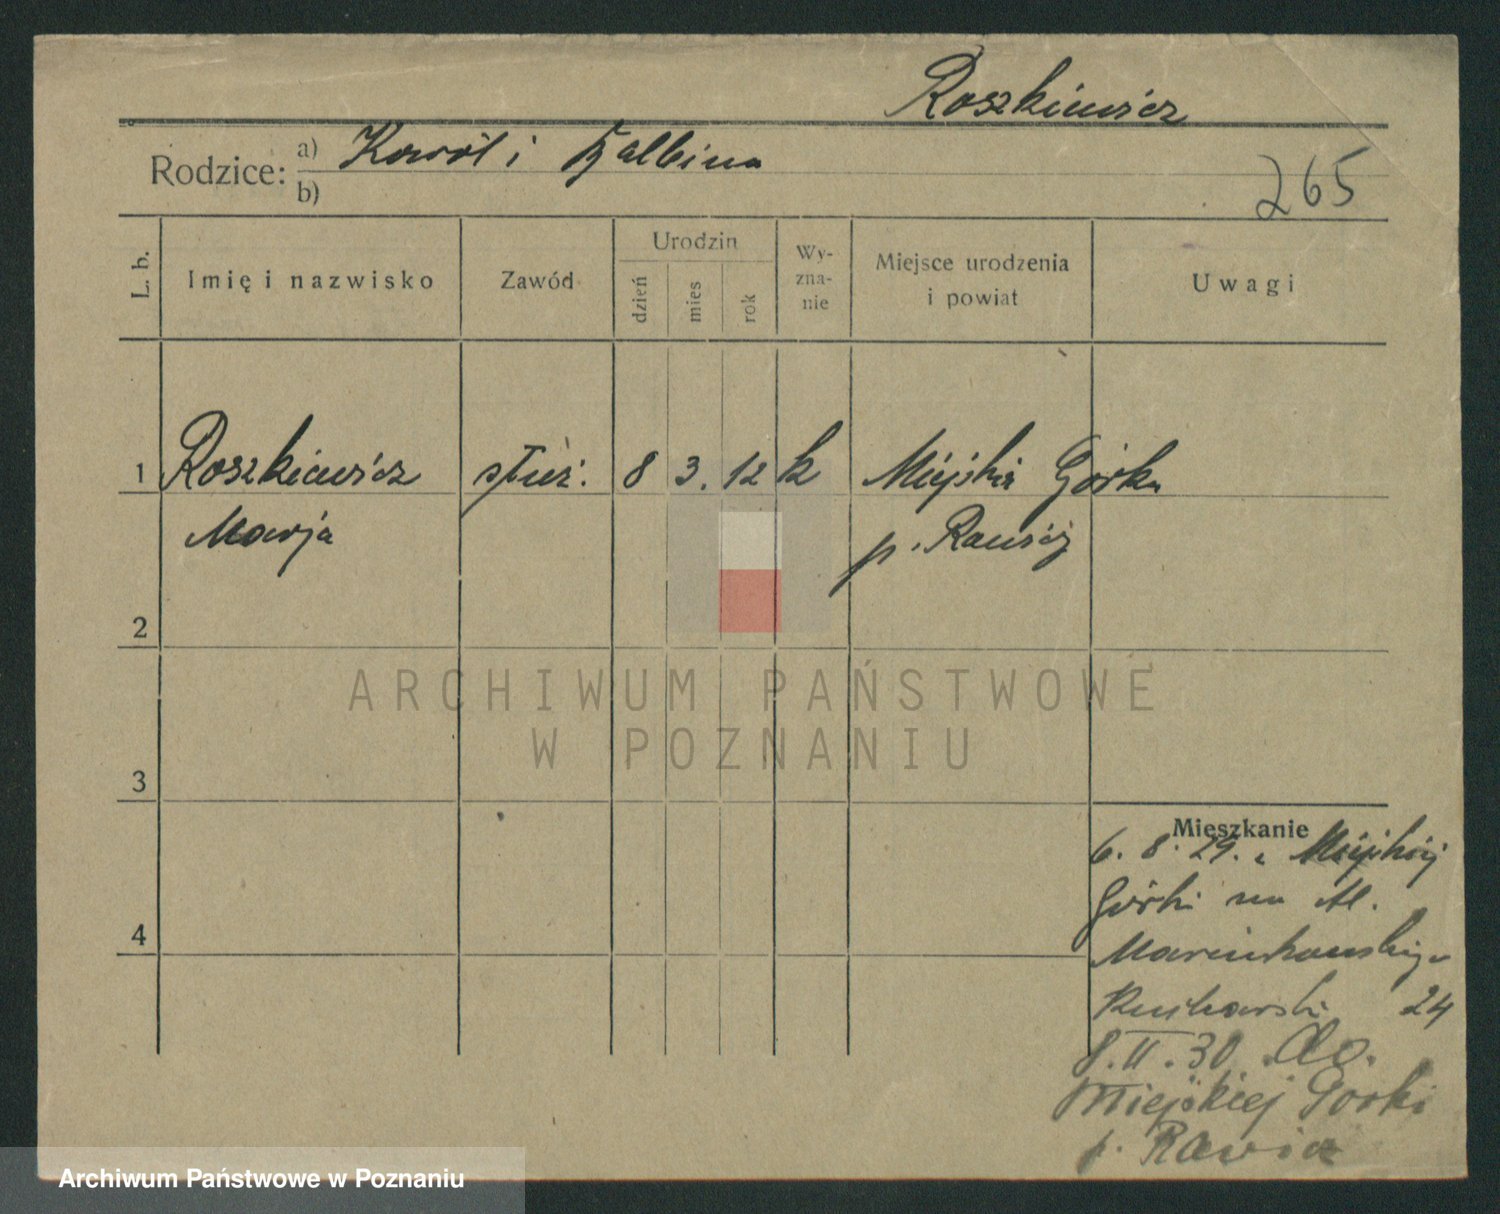 Roszkiewicz
Rodzice: a) Karól i Balbina
b)
265
L. b.
Imię i nazwisko
Zawód
Urodzin
dzień
mies
rok
Wy-
zna-
nie
Miejsce urodzenia
i powiat
Uwagi
1 Roszkiewicz służ. 8 3. 12 k Miejska Górka
Marja p. Rawicz
2
ARCHIWUM PAŃSTWOWE
W POZNANIU
3
Mieszkanie
6. 8. 29. z Miejskiej
Górki na Al.
Marcinkowskiego
24
4
8. II. 30 do
Miejskiej Gorki
p. Rawicz
Archiwum Państwowe w Poznaniu